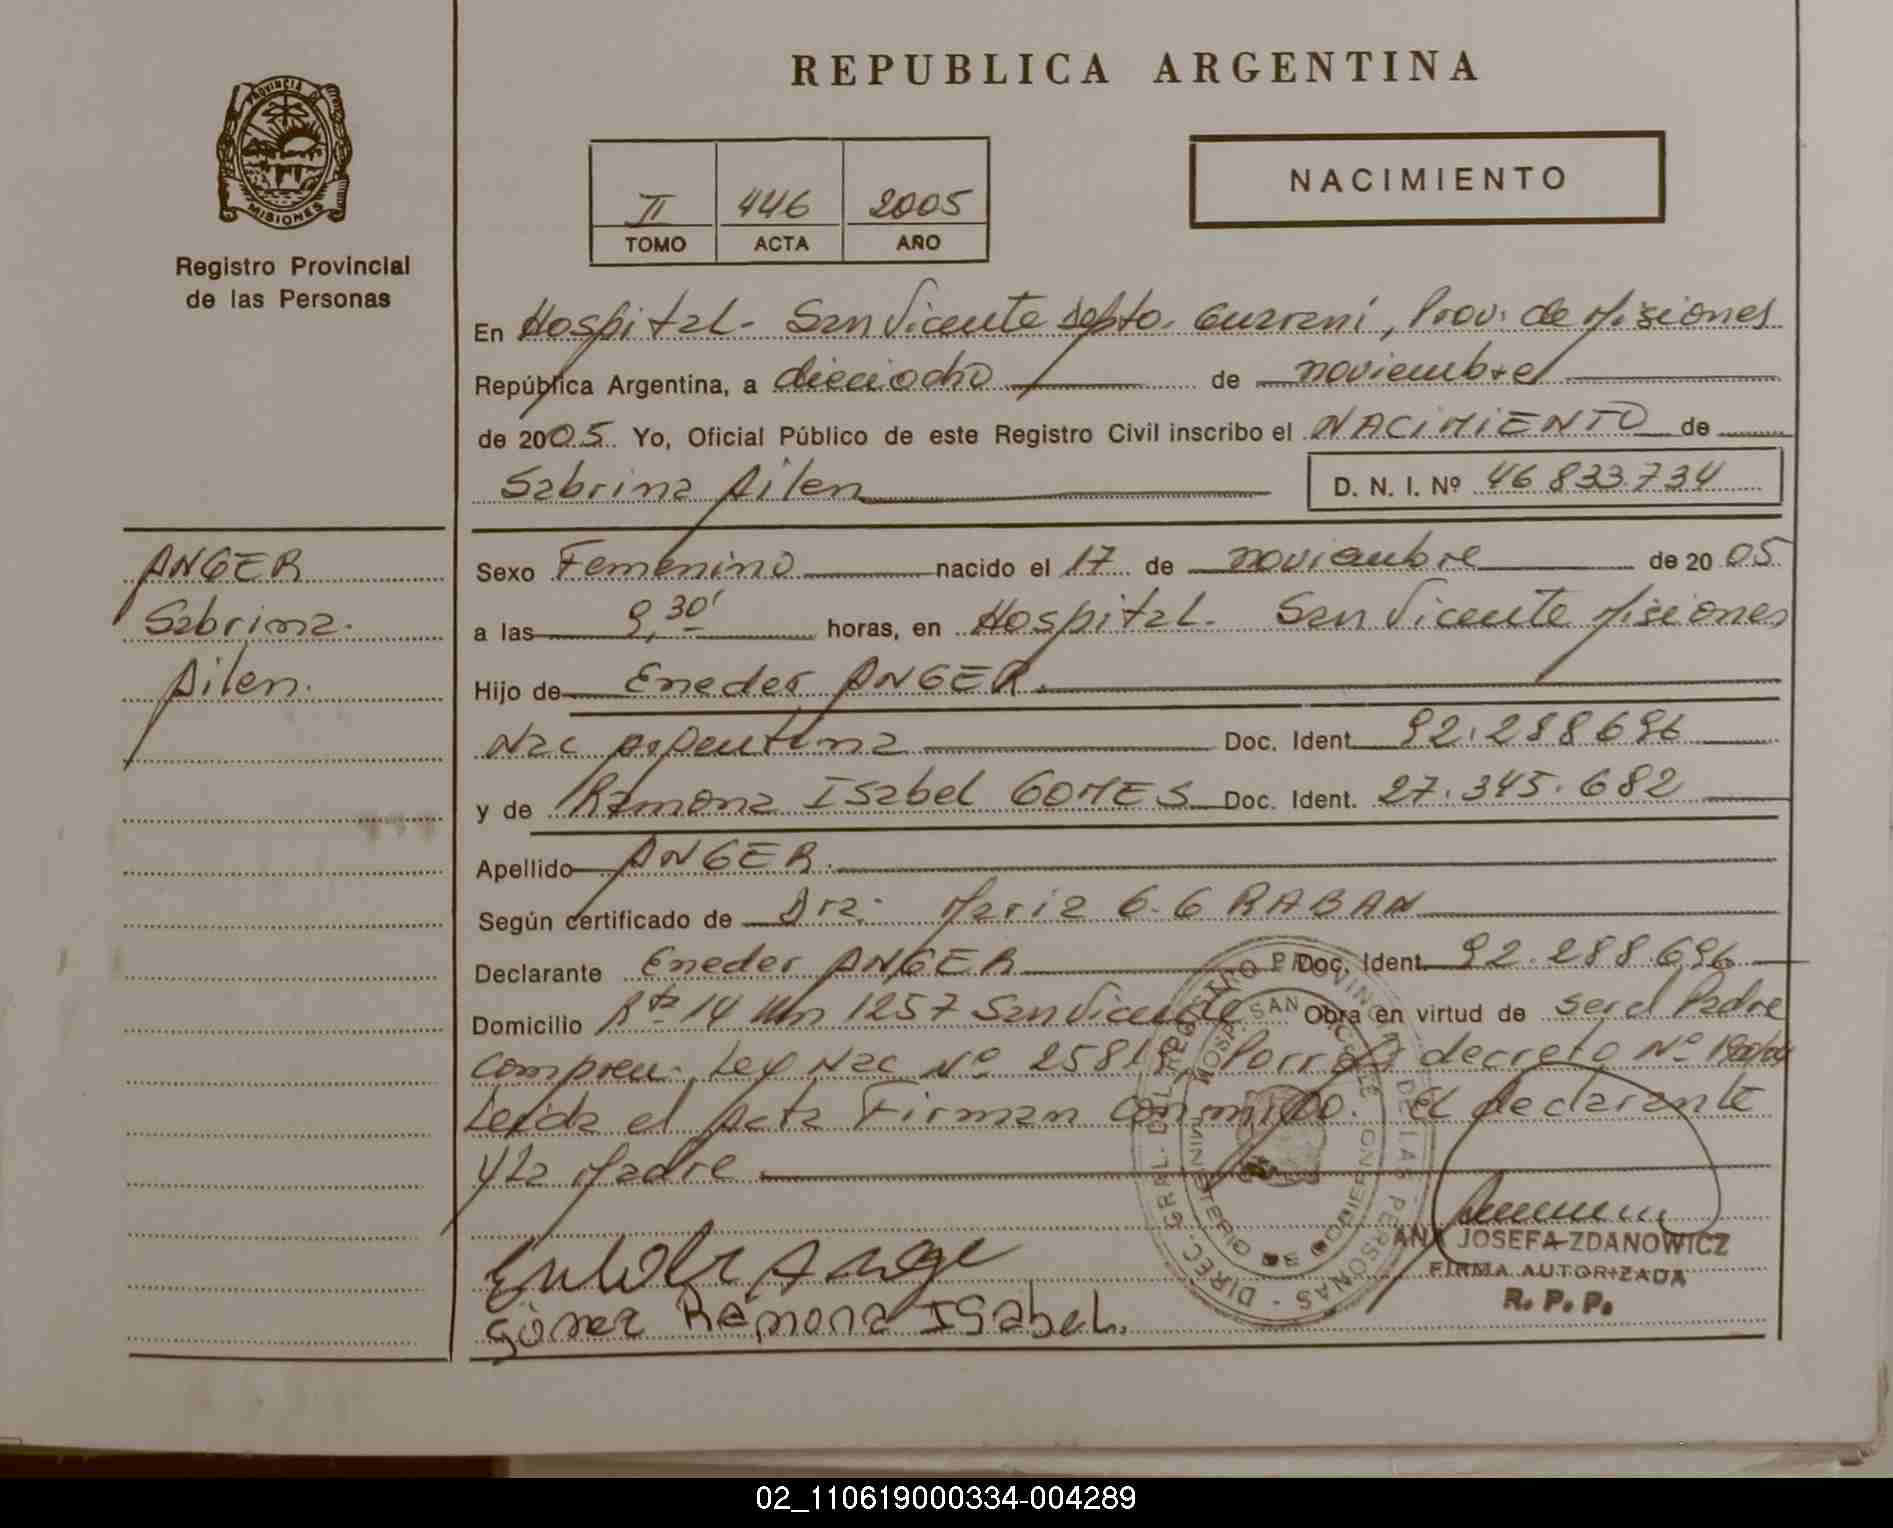 REPUBLICA ARGENTINA
PROVINCIA DE MISIONES
Registro Provincial
de las Personas
II 446 2005
TOMO ACTA AÑO
NACIMIENTO
En Hospital - San Vicente depto. Guarani, Prov. de Misiones
República Argentina, a dieciocho de noviembre
de 2005 Yo, Oficial Público de este Registro Civil inscribo el NACIMIENTO de
Sabrina Ailen D. N. I. Nº 46.833.734
ANGER
Sabrina
Ailen.
Sexo Femenino nacido el 17 de noviembre de 2005
a las 9,30' horas, en Hospital - San Vicente Misiones
Hijo de Eneder ANGER
Nac argentina Doc. Ident. 92.288.696
y de Ramona Isabel GOMES Doc. Ident. 27.345.682
Apellido ANGER.
Según certificado de Dra. Maria G. G RABAN
Declarante Eneder ANGER Doc. Ident. 92.288.696
Domicilio Rta 14 Km 1257 San Vicente Obra en virtud de ser el Padre
compren. Ley Nac Nº 25819, Porrog decreto Nº
Leida el Acta Firman conmigo. el declarante
y La Madre
ANA JOSEFA ZDANOWICZ
FIRMA AUTORIZADA
R. P. P.
Gómez Ramona Isabel.
DIREC. GRAL. DEL REGISTRO PROVINCIAL DE LAS PERSONAS
HOSP. SAN VICENTE
MINISTERIO DE GOBIERNO
02_110619000334-004289